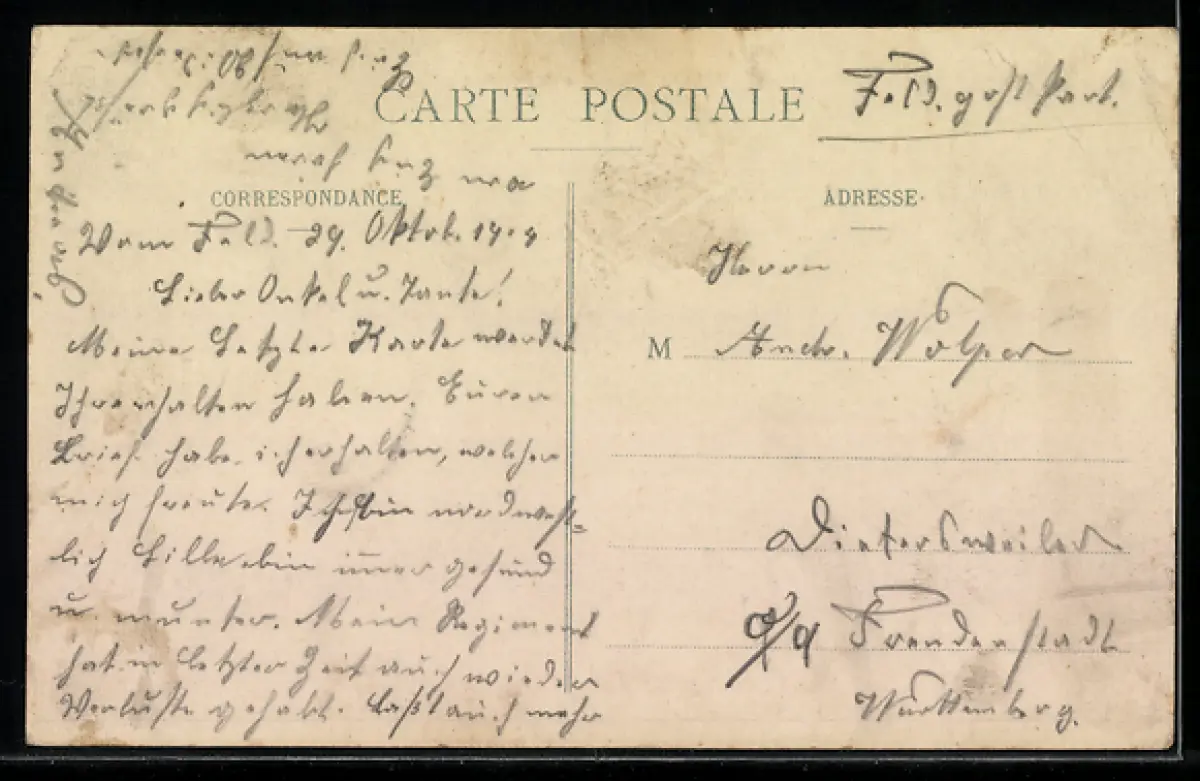 CARTE POSTALE
Feldpostkart.
CORRESPONDANCE
ADRESSE
Vom Feld. 29. Oktob. 1914
Lieber Onkel u. Tante!
Meine letzte Karte werdet
Ihr erhalten haben. Euren
Brief habe ich erhalten, welcher
mich freute. Ich bin nordwest-
lich Lille bin immer gesund
u. munter. Mein Regiment
hat in letzter Zeit auch wieder
Verluste gehabt. Laßt auch mehr
von
Herrn
M Andr. Wolper
Dietersweiler
O/A Freudenstadt
Württemberg.